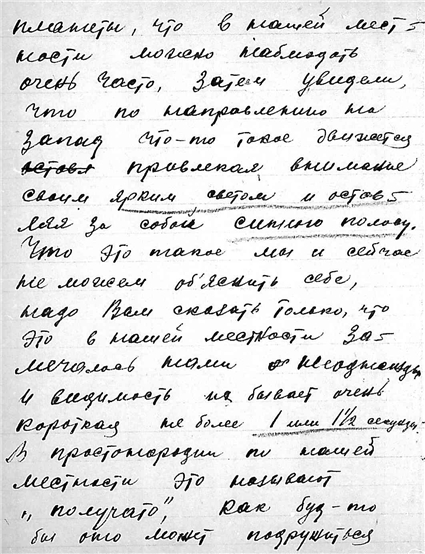 планеты, что в нашей мест-
ности можно наблюдать
очень часто, затем увидели,
что по направлению на
запад что-то такое движется
остовл привлекая внимание
своим ярким светом и остов-
ляя за собой синюю полосу.
Что это такое мы и сейчас
не можем об'яснить себе,
надо Вам сказать только, что
это в нашей местности за-
мечалось нами неоднажды
и видимость бывает очень
короткая не более 1 или 1½ секунды.
В простонародии по нашей
местности это называют
„получато", как буд-то
бы оно может подружиться